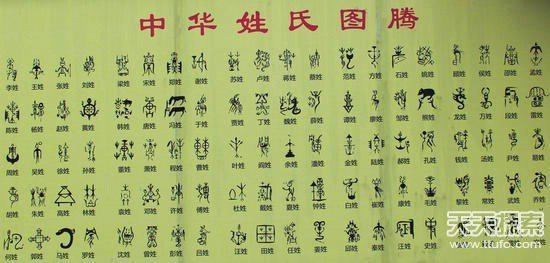 中华姓氏图腾
李姓 王姓 张姓 刘姓 梁姓 宋姓 郑姓 谢姓 苏姓 卢姓 蒋姓 蔡姓 范姓 方姓 石姓 姚姓 顾姓 侯姓 邵姓 孟姓
陈姓 杨姓 赵姓 黄姓 韩姓 唐姓 冯姓 于姓 贾姓 丁姓 魏姓 薛姓 谭姓 廖姓 邹姓 熊姓 龙姓 万姓 段姓 雷姓
周姓 吴姓 徐姓 孙姓 董姓 萧姓 程姓 曹姓 叶姓 阎姓 余姓 潘姓 金姓 陆姓 郝姓 孔姓 钱姓 汤姓 尹姓 易姓
胡姓 朱姓 高姓 林姓 袁姓 邓姓 许姓 傅姓 杜姓 戴姓 夏姓 钟姓 白姓 崔姓 康姓 毛姓 黎姓 常姓 武姓 乔姓
何姓 郭姓 马姓 罗姓 沈姓 曾姓 彭姓 吕姓 汪姓 田姓 任姓 姜姓 邱姓 秦姓 江姓 史姓
天天探索
www.ttufo.com